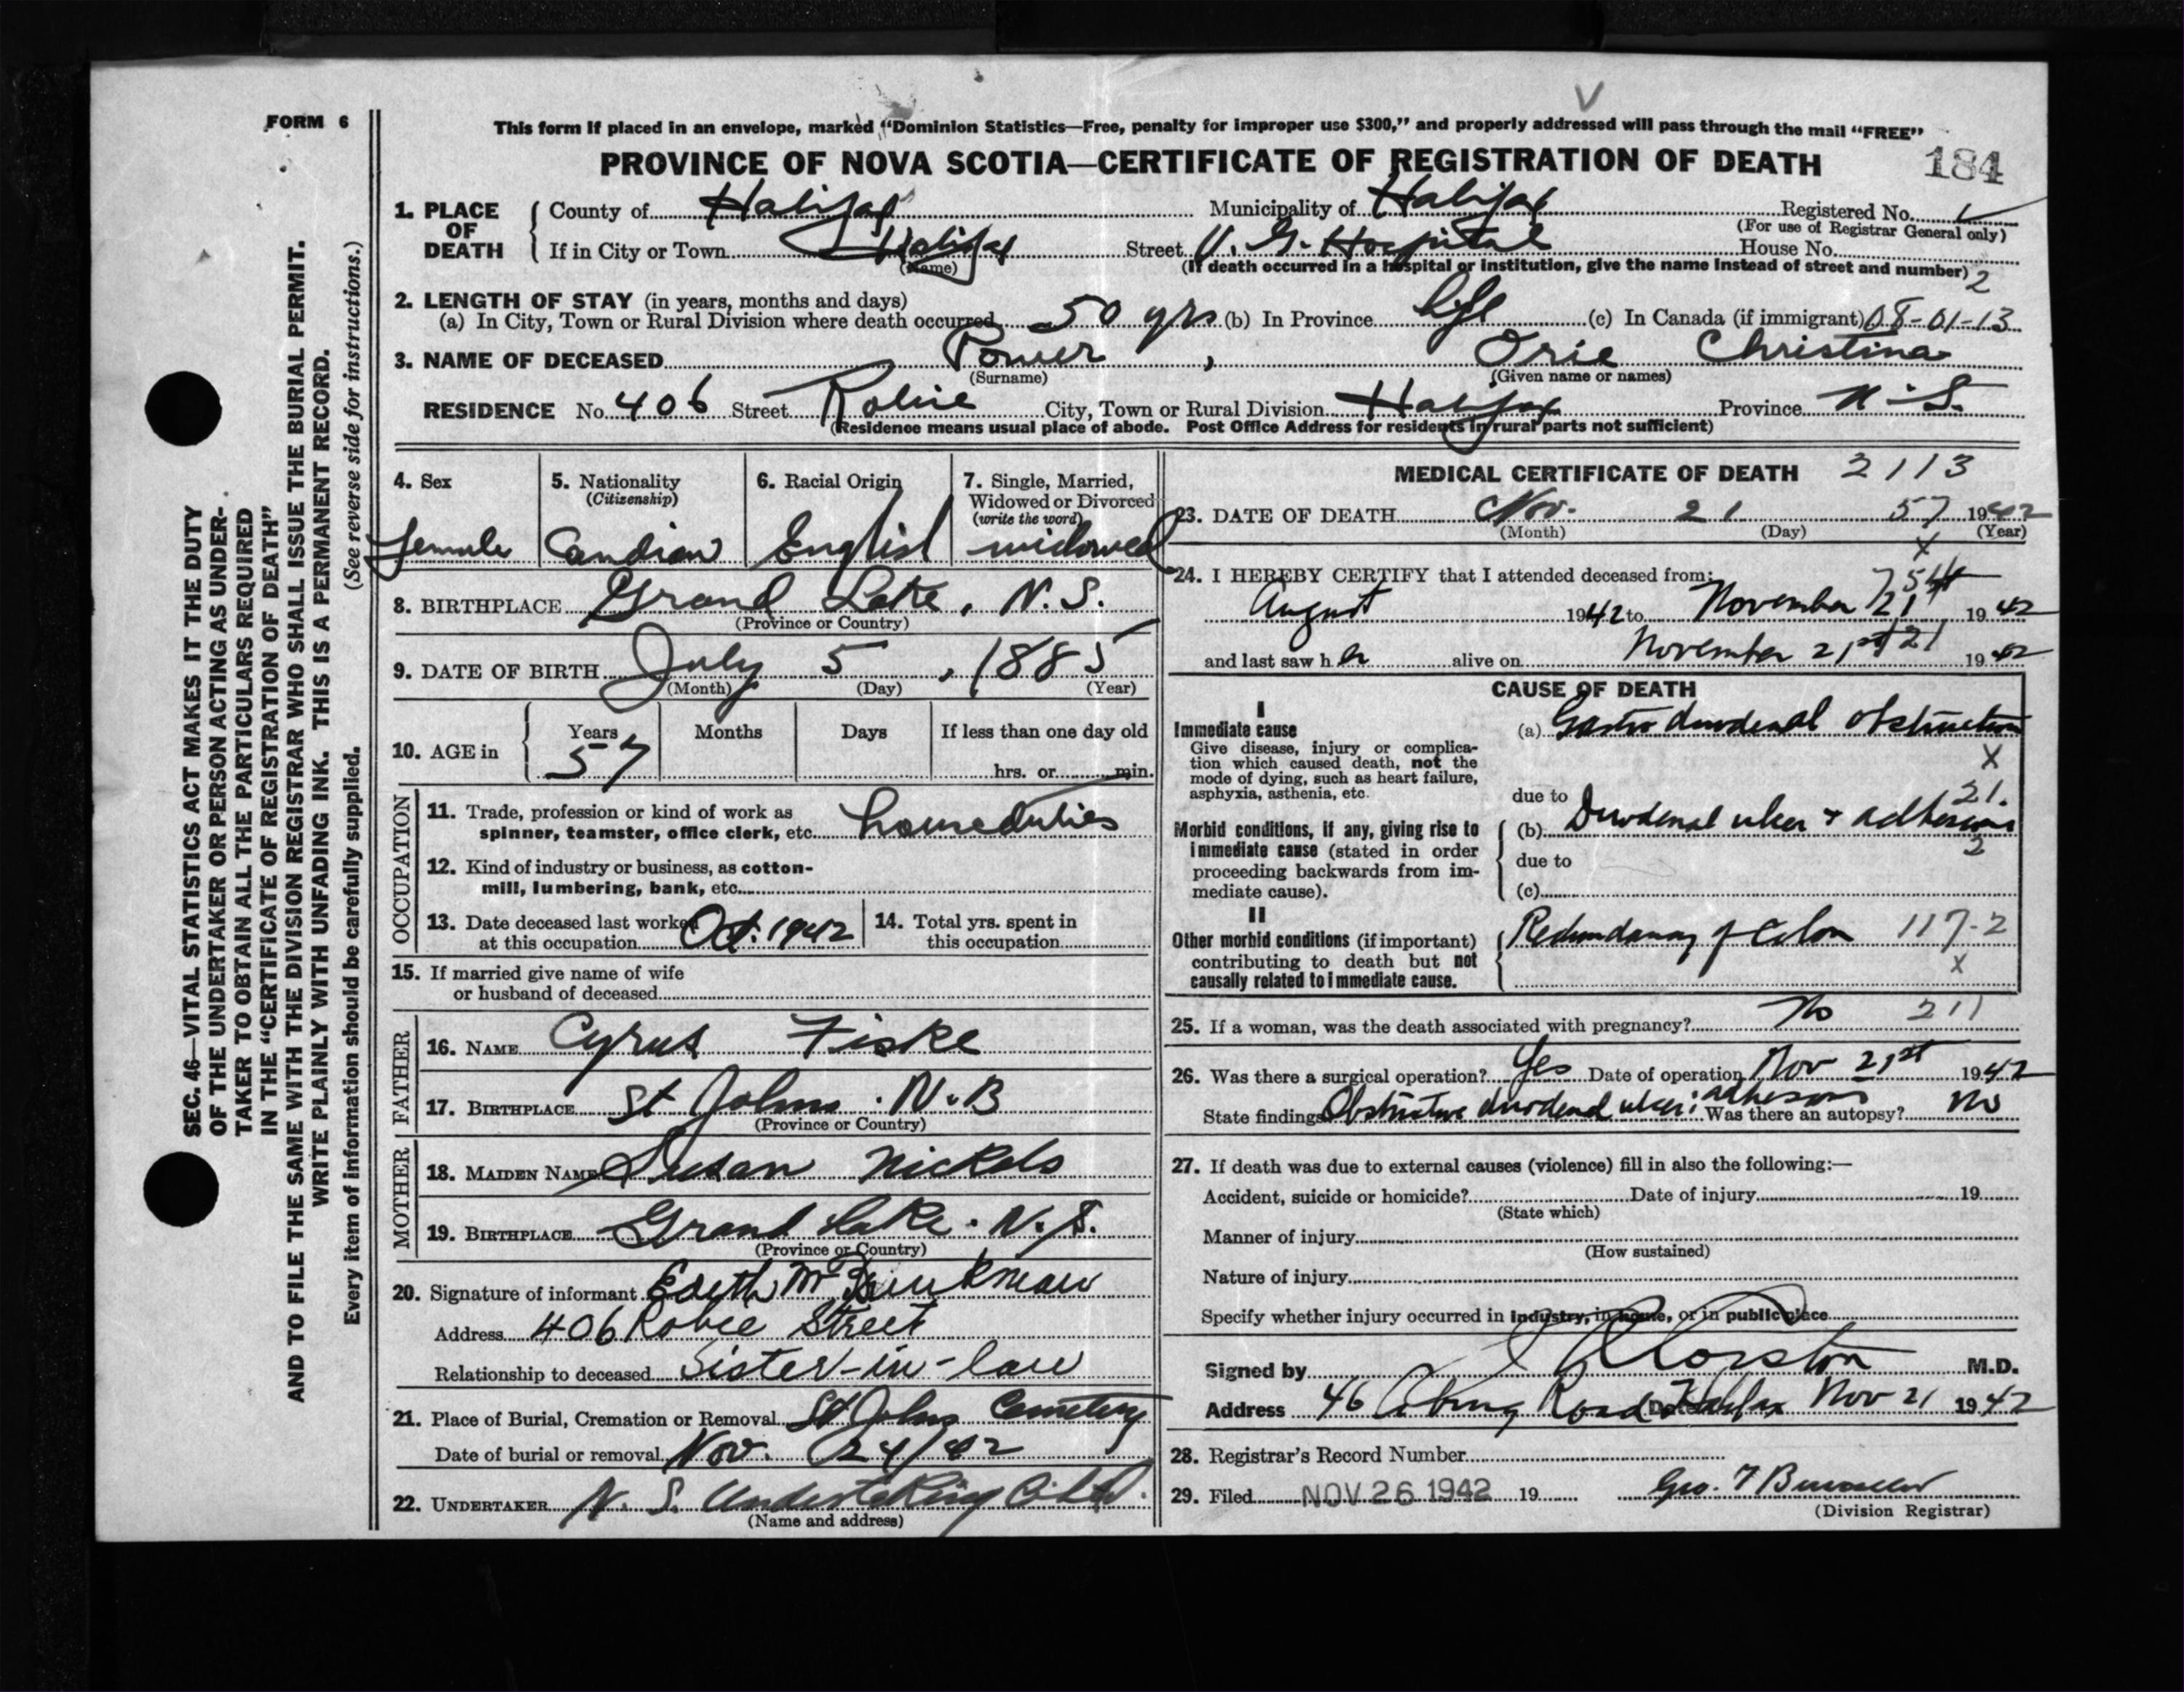 FORM 6
This form if placed in an envelope, marked "Dominion Statistics—Free, penalty for improper use $300," and properly addressed will pass through the mail "FREE"
PROVINCE OF NOVA SCOTIA—CERTIFICATE OF REGISTRATION OF DEATH 184
1. PLACE OF DEATH County of Halifax Municipality of Halifax Registered No.
(For use of Registrar General only)
If in City or Town Halifax Street V. G. Hospital House No.
(Name) (If death occurred in a hospital or institution, give the name instead of street and number) 2
2. LENGTH OF STAY (in years, months and days)
(a) In City, Town or Rural Division where death occurred 50 yrs (b) In Province life (c) In Canada (if immigrant) 08-01-13
3. NAME OF DECEASED Power, Orie Christina
(Surname) (Given name or names)
RESIDENCE No. 406 Street Robie City, Town or Rural Division Halifax Province N.S.
(Residence means usual place of abode. Post Office Address for residents in rural parts not sufficient)
4. Sex 5. Nationality 6. Racial Origin 7. Single, Married,
(Citizenship) Widowed or Divorced
(write the word)
female Candian English widowed
8. BIRTHPLACE Grand Lake, N.S.
(Province or Country)
9. DATE OF BIRTH July 5, 1885
(Month) (Day) (Year)
10. AGE in Years Months Days If less than one day old
57 hrs. or min.
OCCUPATION
11. Trade, profession or kind of work as
spinner, teamster, office clerk, etc. houseduties
12. Kind of industry or business, as cotton-
mill, lumbering, bank, etc.
13. Date deceased last worked at this occupation Oct. 1942 14. Total yrs. spent in this occupation
15. If married give name of wife
or husband of deceased
FATHER
16. NAME Cyrus Fiske
17. BIRTHPLACE St Johns. N.B
(Province or Country)
MOTHER
18. MAIDEN NAME Susan Nickols
19. BIRTHPLACE Grand Lake. N.S.
(Province or Country)
20. Signature of informant Edith M
Address 406 Robie Street
Relationship to deceased Sister-in-law
21. Place of Burial, Cremation or Removal St Johns Cemetery
Date of burial or removal Nov. 24/42
22. UNDERTAKER N. S. Undertaking Co. Ltd.
(Name and address)
MEDICAL CERTIFICATE OF DEATH 2113
23. DATE OF DEATH Nov. 21 57 1942
(Month) (Day) (Year)
X
24. I HEREBY CERTIFY that I attended deceased from: 754
August 1942 to November 21 1942
and last saw her alive on November 21st 21 1942
CAUSE OF DEATH
I
Immediate cause
Give disease, injury or complica-
tion which caused death, not the
mode of dying, such as heart failure,
asphyxia, asthenia, etc.
(a) Gastro duodenal obstruction
X
due to 21.
Morbid conditions, if any, giving rise to
immediate cause (stated in order
proceeding backwards from im-
mediate cause).
(b) Duodenal ulcer & adhesions
2
due to
(c)
II
Other morbid conditions (if important)
contributing to death but not
causally related to immediate cause.
Redundancy of Colon 117-2
X
25. If a woman, was the death associated with pregnancy? No 211
26. Was there a surgical operation? Yes Date of operation Nov 21st 1942
State findings Obstructive duodenal ulcer; adhesions Was there an autopsy? No
27. If death was due to external causes (violence) fill in also the following:—
Accident, suicide or homicide? Date of injury 19
(State which)
Manner of injury
(How sustained)
Nature of injury
Specify whether injury occurred in industry, in home, or in public place
Signed by M.D.
Address 46 Road Halifax Date Nov 21 1942
28. Registrar's Record Number
29. Filed NOV 26 1942 19 Geo. F
(Division Registrar)
SEC. 46—VITAL STATISTICS ACT MAKES IT THE DUTY
OF THE UNDERTAKER OR PERSON ACTING AS UNDER-
TAKER TO OBTAIN ALL THE PARTICULARS REQUIRED
IN THE "CERTIFICATE OF REGISTRATION OF DEATH"
AND TO FILE THE SAME WITH THE DIVISION REGISTRAR WHO SHALL ISSUE THE BURIAL PERMIT.
WRITE PLAINLY WITH UNFADING INK. THIS IS A PERMANENT RECORD.
Every item of information should be carefully supplied. (See reverse side for instructions.)